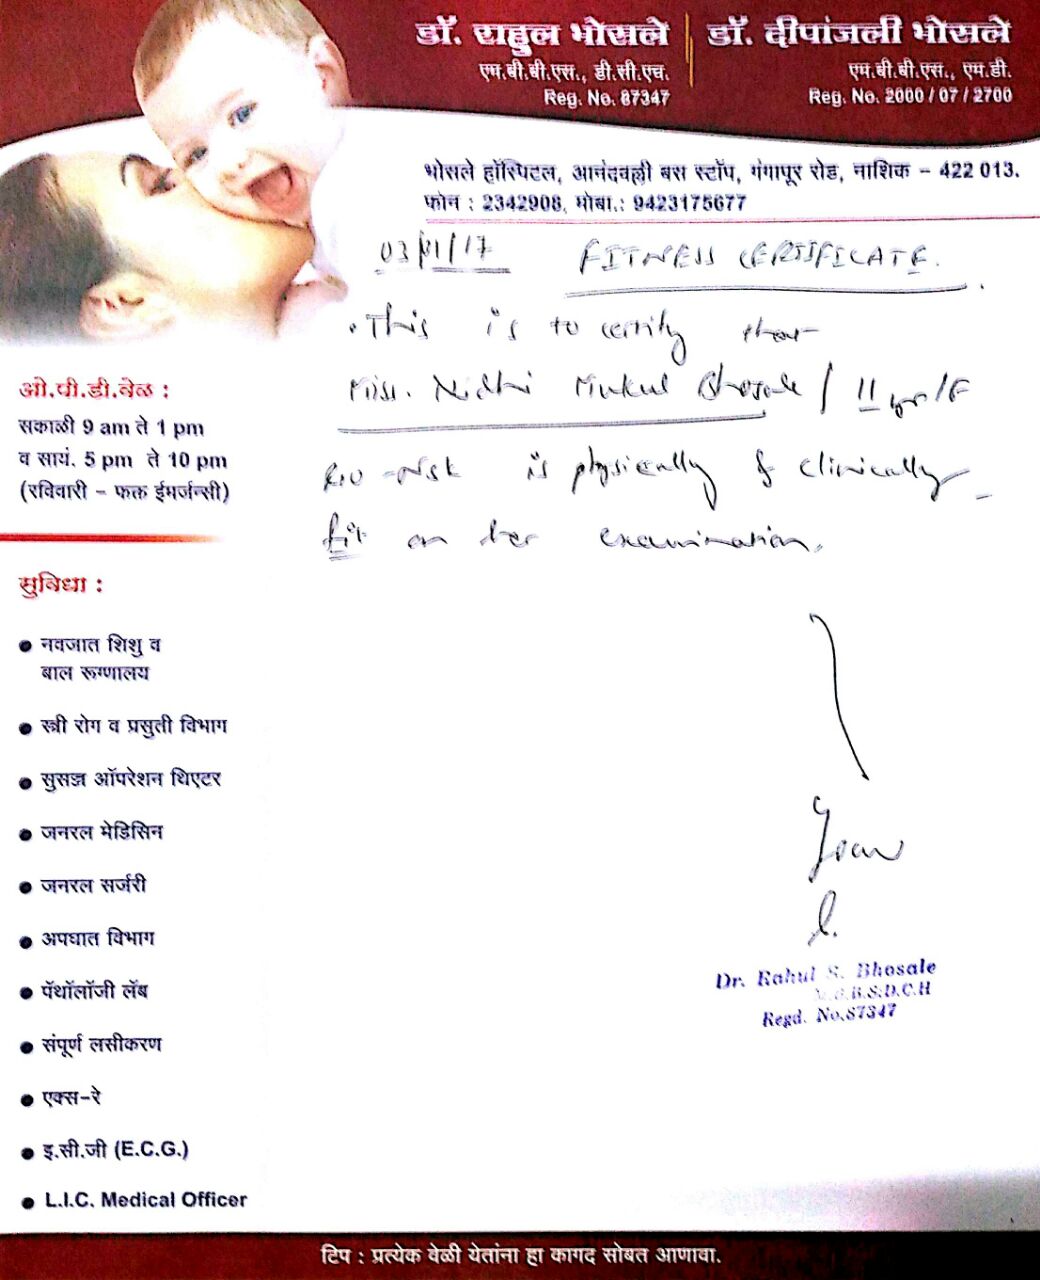 डॉ. राहुल भोसले
एम.बी.बी.एस., डी.सी.एच.
Reg. No. 87347
डॉ. दीपांजली भोसले
एम.बी.बी.एस., एम.डी.
Reg. No. 2000 / 07 / 2700
भोसले हॉस्पिटल, आनंदवल्ली बस स्टॉप, गंगापूर रोड, नाशिक – 422 013.
फोन : 2342908, मोबा.: 9423175677
03/01/17 FITNESS CERTIFICATE.
This is to certify that
Miss. Nidhi Mukul Bhosale / 11 yrs/F
R/o Nsk is physically & clinically
fit on her examination.
ओ.पी.डी.वेळ :
सकाळी 9 am ते 1 pm
व सायं. 5 pm ते 10 pm
(रविवारी – फक्त ईमर्जन्सी)
सुविधा :
नवजात शिशु व
बाल रूग्णालय
स्त्री रोग व प्रसुती विभाग
सुसज्ज ऑपरेशन थिएटर
जनरल मेडिसिन
जनरल सर्जरी
अपघात विभाग
पॅथॉलॉजी लॅब
संपूर्ण लसीकरण
एक्स-रे
इ.सी.जी (E.C.G.)
L.I.C. Medical Officer
Dr. Rahul S. Bhosale
M.B.B.S.D.C.H
Regd. No.87347
टिप : प्रत्येक वेळी येतांना हा कागद सोबत आणावा.